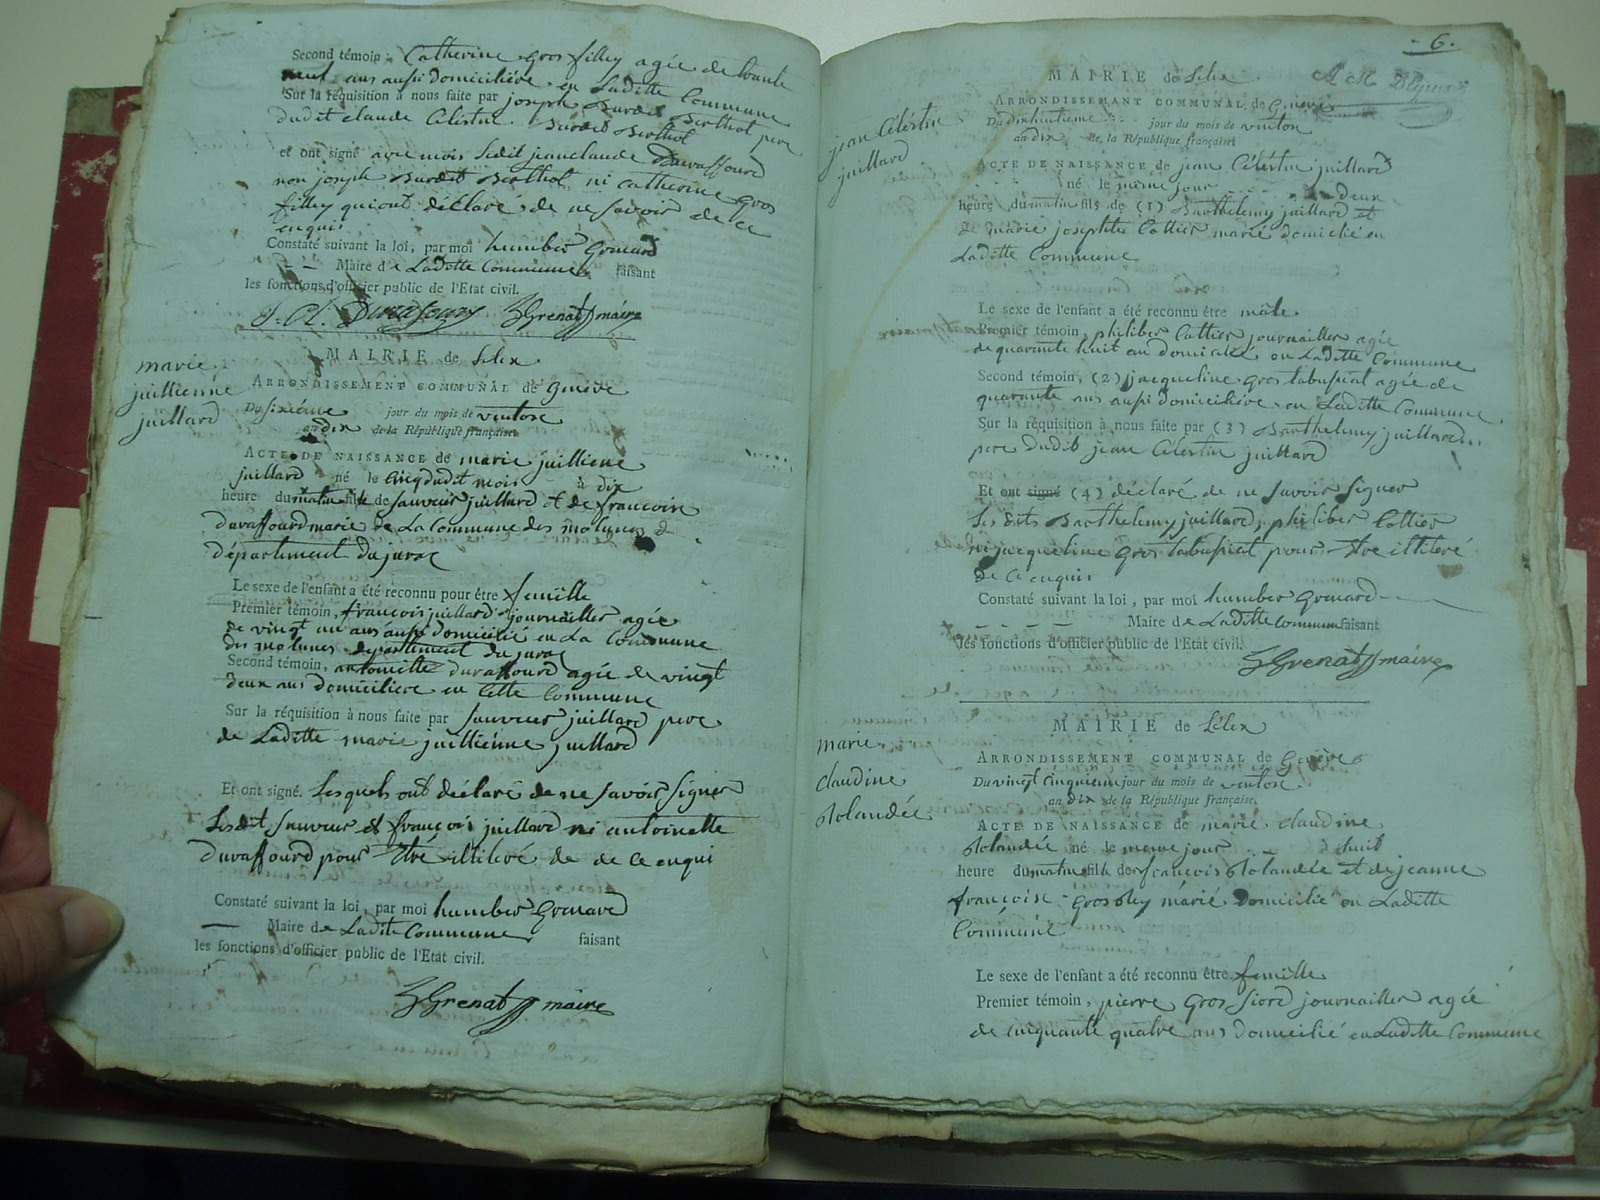 Second témoin, Catherine Gros filley agée de trante
neuf ans aussi domiciliére en Laditte Commune
Sur la réquisition à nous faite par joseph Burdet Berthol pere
dudit claude Célestin Burdet Berthol
et ont signé avec mois Ledit jean claude Duraffourd
non joseph Burdet Berthol ni catherine gros
filley qui ont déclaré de ne savoir de ce
enquis
Constaté suivant la loi, par moi humber Grenard
Maire de Laditte Commune faisant
les fonctions d'officier public de l'Etat civil.
J. Cl. Duraffourg h Grenat maire
marie
juillienne
juillard
MAIRIE de Lelex
ARRONDISSEMENT COMMUNAL de Genève
Du sixiéme jour du mois de ventose
an dix de la République française
ACTE DE NAISSANCE de marie juilliene
juillard né le cinq dudit mois à dix
heure du matin fille de sauveur juillard et de francoise
duraffourd marié de La Commune des molunes d
département du jura
Le sexe de l'enfant a été reconnu pour être femille
Premier témoin, françois juillard journailler agée
de vingt un ans aussi domicilié en La Commune
des molunes departement du jura
Second témoin, antoinette duraffourd agée de vingt
deux ans domiciliere en Cette Commune
Sur la réquisition à nous faite par sauveur juillard pere
de Laditte marie juilliénne juillard
Et ont signé. Lesquels ont déclaré de ne savoir signer
Lesdit sauveur et françois juillard ni antoinette
duraffourd pour Etre illiteré de de ce enqui
Constaté suivant la loi, par moi humber Grenard
Maire de Ladite Commune faisant
les fonctions d'officier public de l'Etat civil.
h Grenat maire
6.
MAIRIE de Lelex
jean Célestin
juillard
ARRONDISSEMENT COMMUNAL de Genève
Du dixhuitieme jour du mois de ventose
an dix de la République française
ACTE DE NAISSANCE de jean Célestin juillard
né le même jour deux
heure du matin fils de (1) Barthelemy juillard et
de marie josephte Cottier marié domicilié en
Laditte Commune
Le sexe de l'enfant a été reconnu être mâle
Premier témoin, philiber Cottier journailler agée
de quarante huit an domicilié en Laditte Commune
Second témoin, (2) jacqueline gros labussiat agée de
quarante ans aussi domiciliére en Laditte Commune
Sur la réquisition à nous faite par (3) Barthelemy juillard
pere dudit jean Célestin juillard
Et ont signé (4) déclaré de ne savoir signer
Lesdits Barthelemy juillard, philiber Cottier
ni jacqueline gros labussiat pour Etre illiteré
de ce enquis
Constaté suivant la loi, par moi humber Grenard
Maire de Laditte Commune faisant
les fonctions d'officier public de l'Etat civil.
h Grenat maire
marie
claudine
Rolandée
MAIRIE de Lélex
ARRONDISSEMENT COMMUNAL de Genève
Du vingt cinquieme jour du mois de ventose
an dix de la République française
ACTE DE NAISSANCE de marie claudine
Rolandée né le meme jour à huit
heure du matin fille de françois Rolandée et de jeanne
françoise Grosbley marié Domicilié en Laditte
Commune
Le sexe de l'enfant a été reconnu être femille
Premier témoin, pierre Gros fiord journailler agée
de cinquante quatre ans domicilié en Laditte Commune